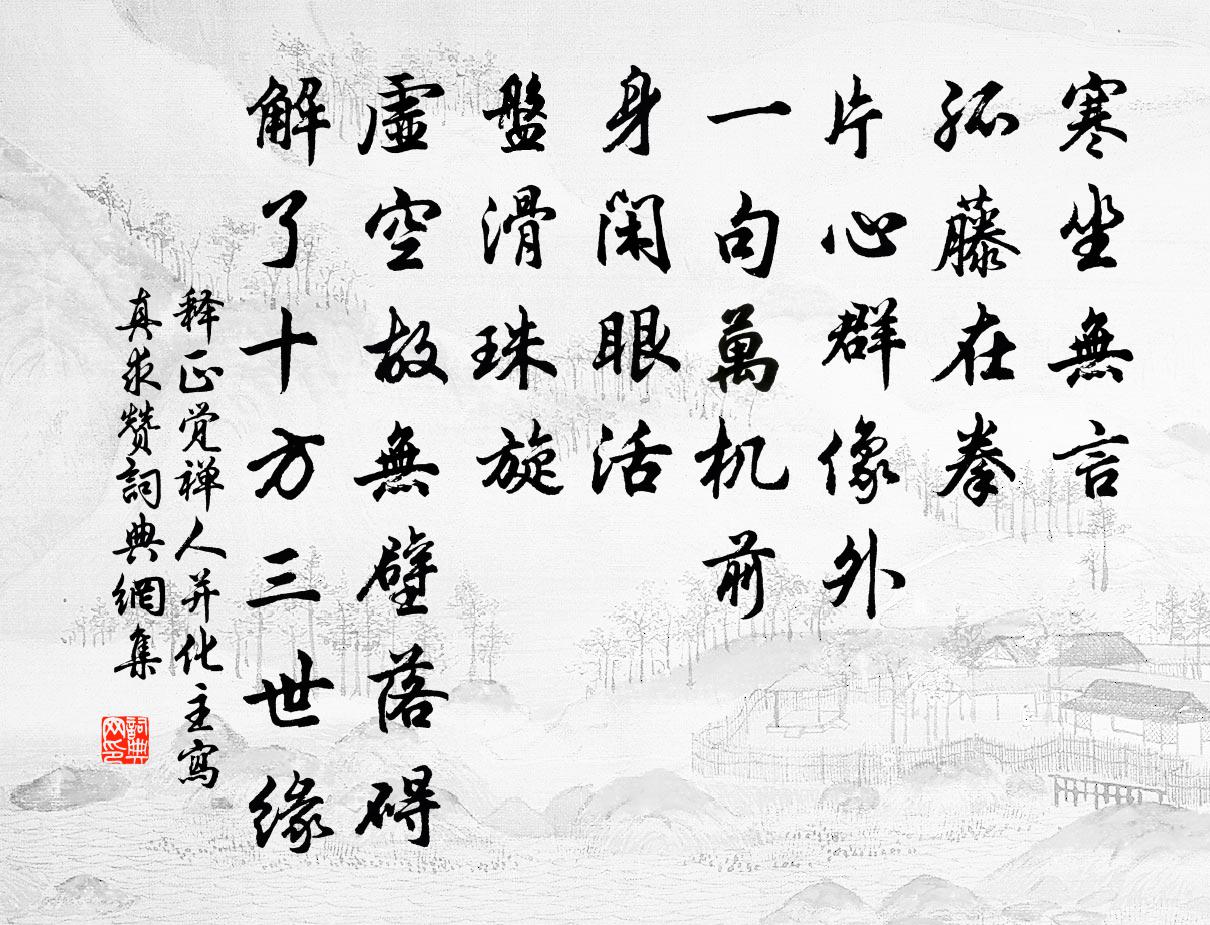 寒坐無言
孤藤在拳
片心群像外
一句萬机前
身閑眼活
盤滑珠旋
虛空故無壁落碍
解了十方三世緣
释正觉禅人并化主寫
真求赞詞典網集
詞典
网印